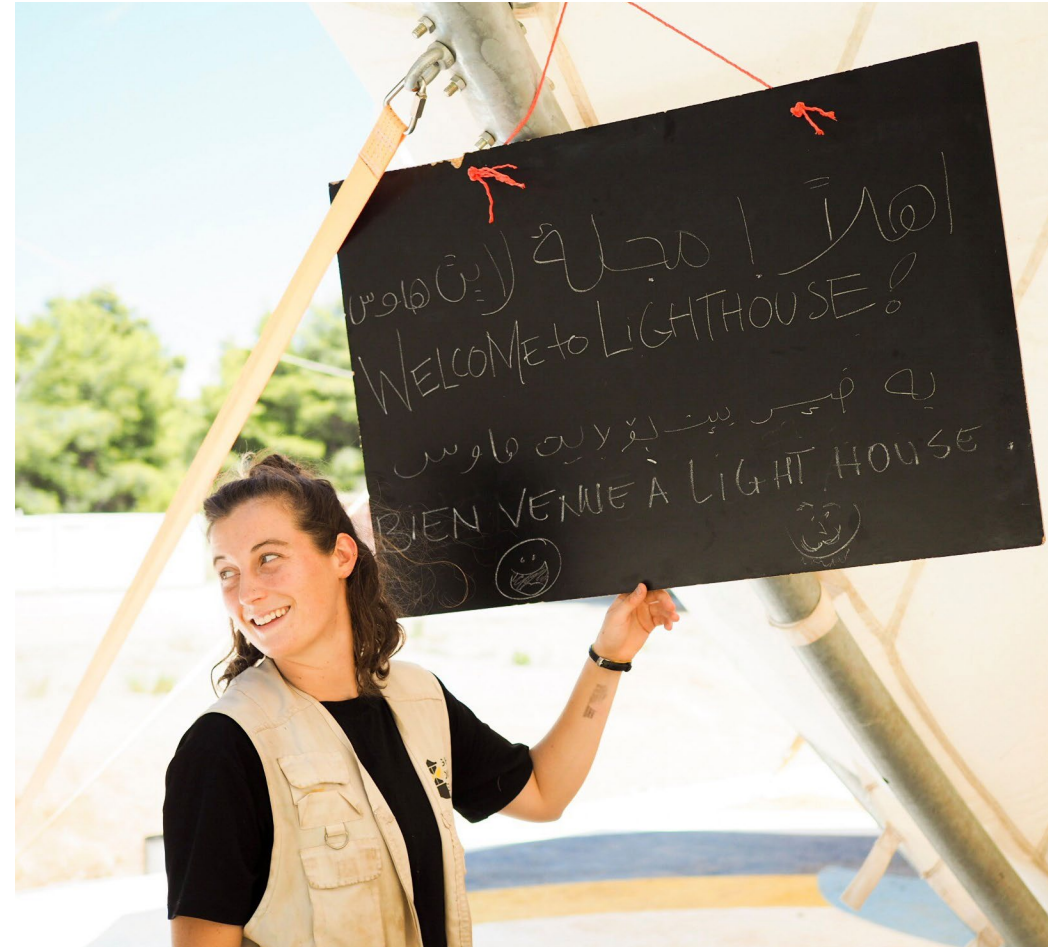 اهلاً ! مجلة لايت هاوس
WELCOME to LiGHTHOUSE!
به خير بيت بۆ لايت هاوس
BIEN VENUE À LIGHT HOUSE